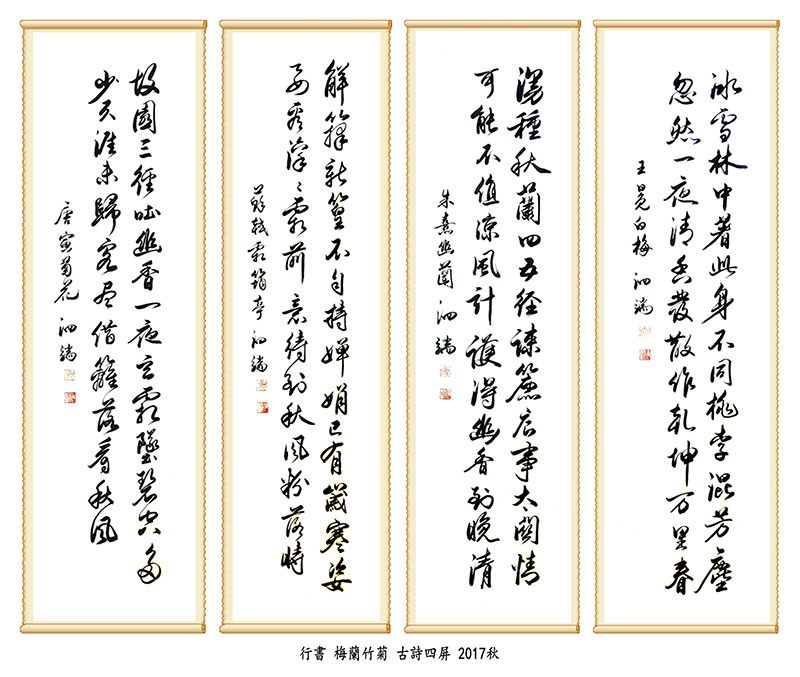 冰雪林中著此身不同桃李混芳塵
忽然一夜清香發散作乾坤万里春
王冕白梅 泗端
漫種秋蘭四五径疎簾底事太關情
可能不值涼風計護得幽香到晚清
朱熹幽蘭 泗端
解籜新篁不自持嬋娟已有歲寒姿
要看凜〻霜前意待到秋風粉落時
蘇軾霜筠亭 泗端
故園三徑吐幽香一夜玄霜墜碧空多
少天涯未歸客尽借籬落看秋風
唐寅菊花 泗端
行書 梅蘭竹菊 古詩四屏 2017秋